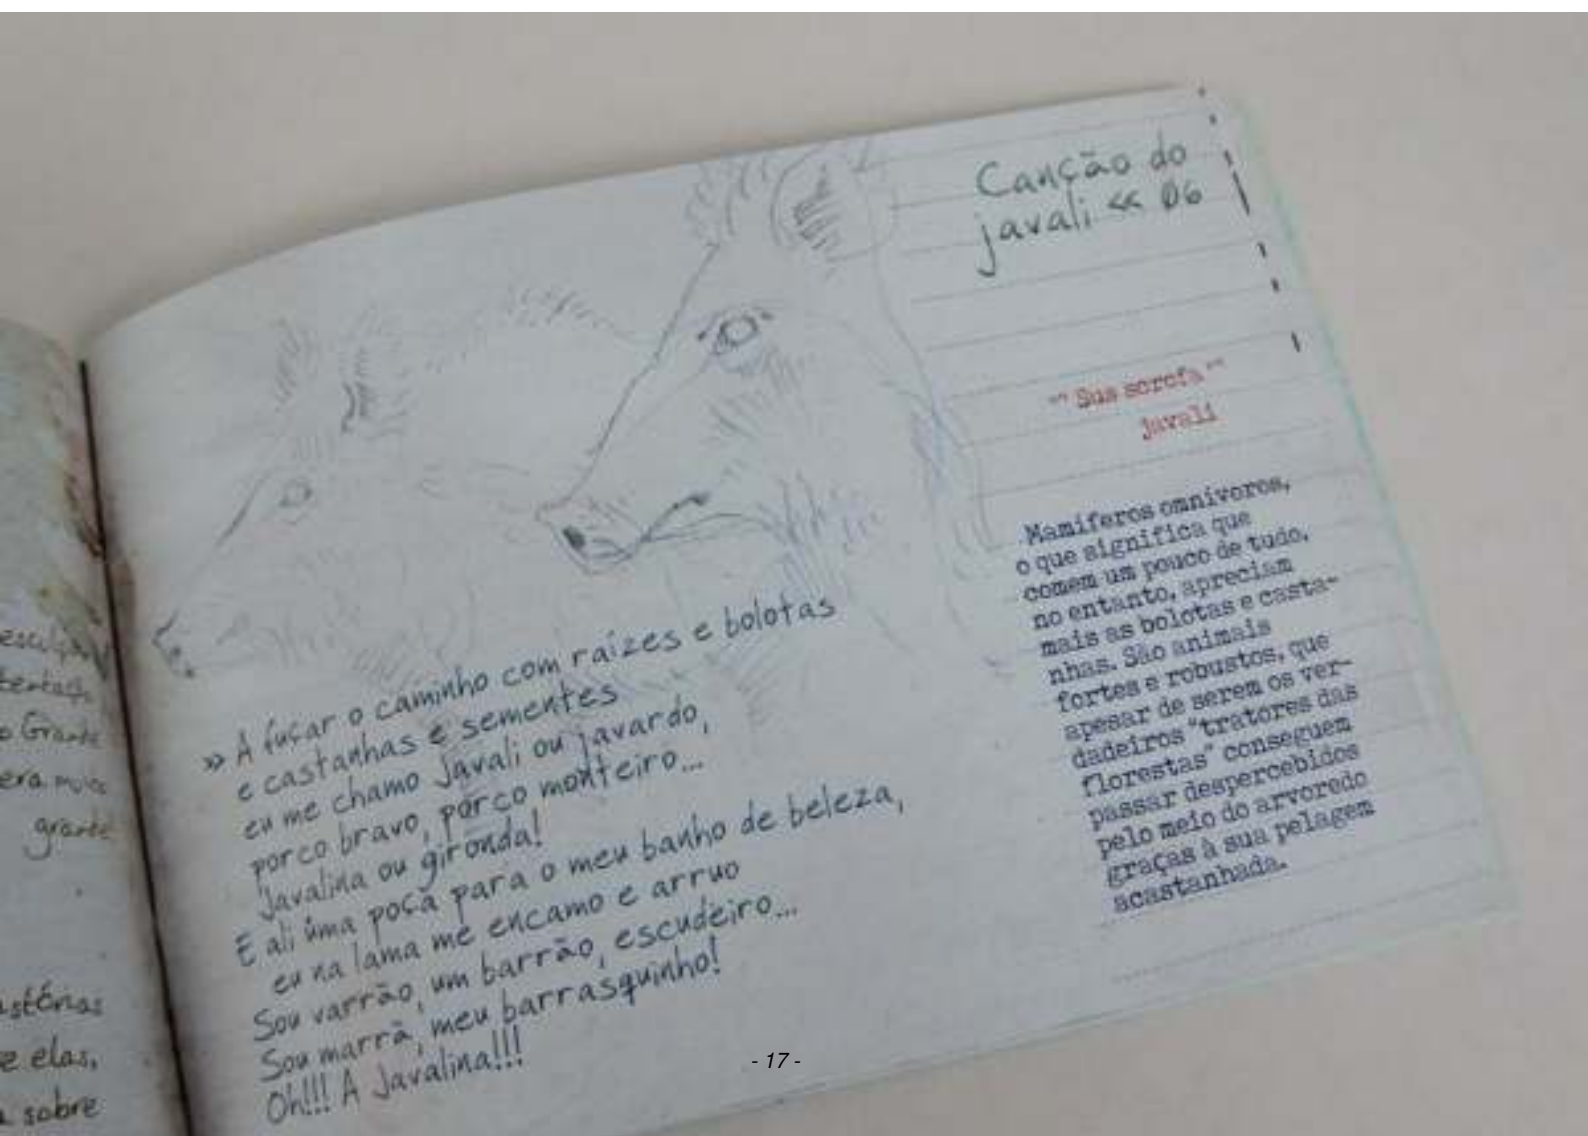 Canção do
javali << 06
"" Sus scrofa ""
javali
Mamíferos omnívoros,
o que significa que
comem um pouco de tudo,
no entanto, apreciam
mais as bolotas e casta-
nhas. São animais
fortes e robustos, que
apesar de serem os ver-
dadeiros "tratores das
florestas" conseguem
passar despercebidos
pelo meio do arvoredo
graças à sua pelagem
acastanhada.
>> A fuçar o caminho com raízes e bolotas
e castanhas e sementes
eu me chamo javali ou javardo,
porco bravo, porco monteiro...
Javalina ou gironda!
E ali uma poça para o meu banho de beleza,
eu na lama me encamo e arruo
Sou varrão, um barrão, escudeiro...
Sou marrã, meu barrasquinho!
Oh!!! A Javalina!!!
o Grante
era
grante
e elas,
sobre
- 17 -